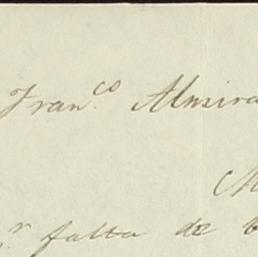 Fran.co Almira
M
r falta de